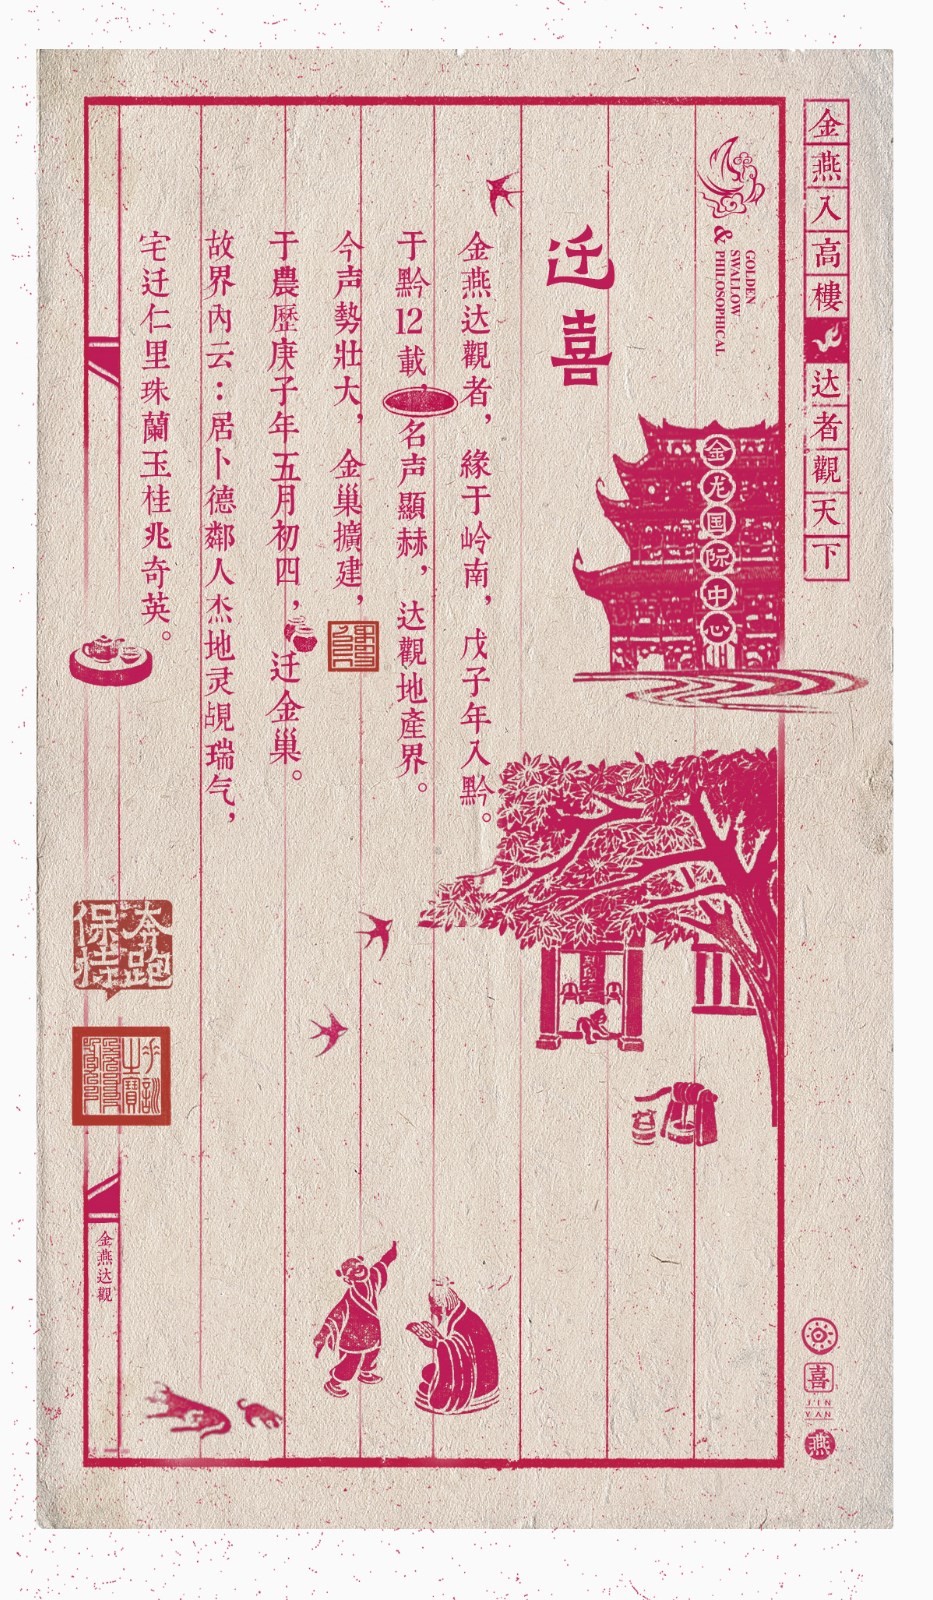 金燕入高樓达者觀天下
GOLDEN
SWALLOW
& PHILOSOPHICAL
金龙国际中心
迁喜
金燕达觀者，緣于岭南，戊子年入黔。
于黔12載，名声顯赫，达觀地產界。
今声勢壯大，金巢擴建，
于農歷庚子年五月初四，迁金巢。
故界內云：居卜德鄰人杰地灵覘瑞气，
宅迁仁里珠蘭玉桂兆奇英。
奔跑
保持
金燕达觀
喜
JIN
YAN
燕